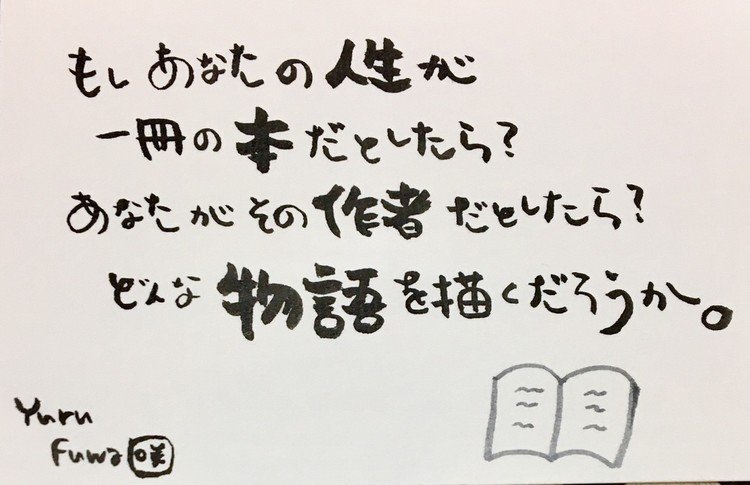 もしあなたの人生が
一冊の本だとしたら？
あなたがその作者だとしたら？
どんな物語を描くだろうか。
Yuru
Fuwa 咲